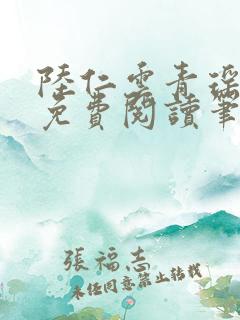 陸仁雲青瑤
免費閱讀筆
張福志
未經同意禁止轉載